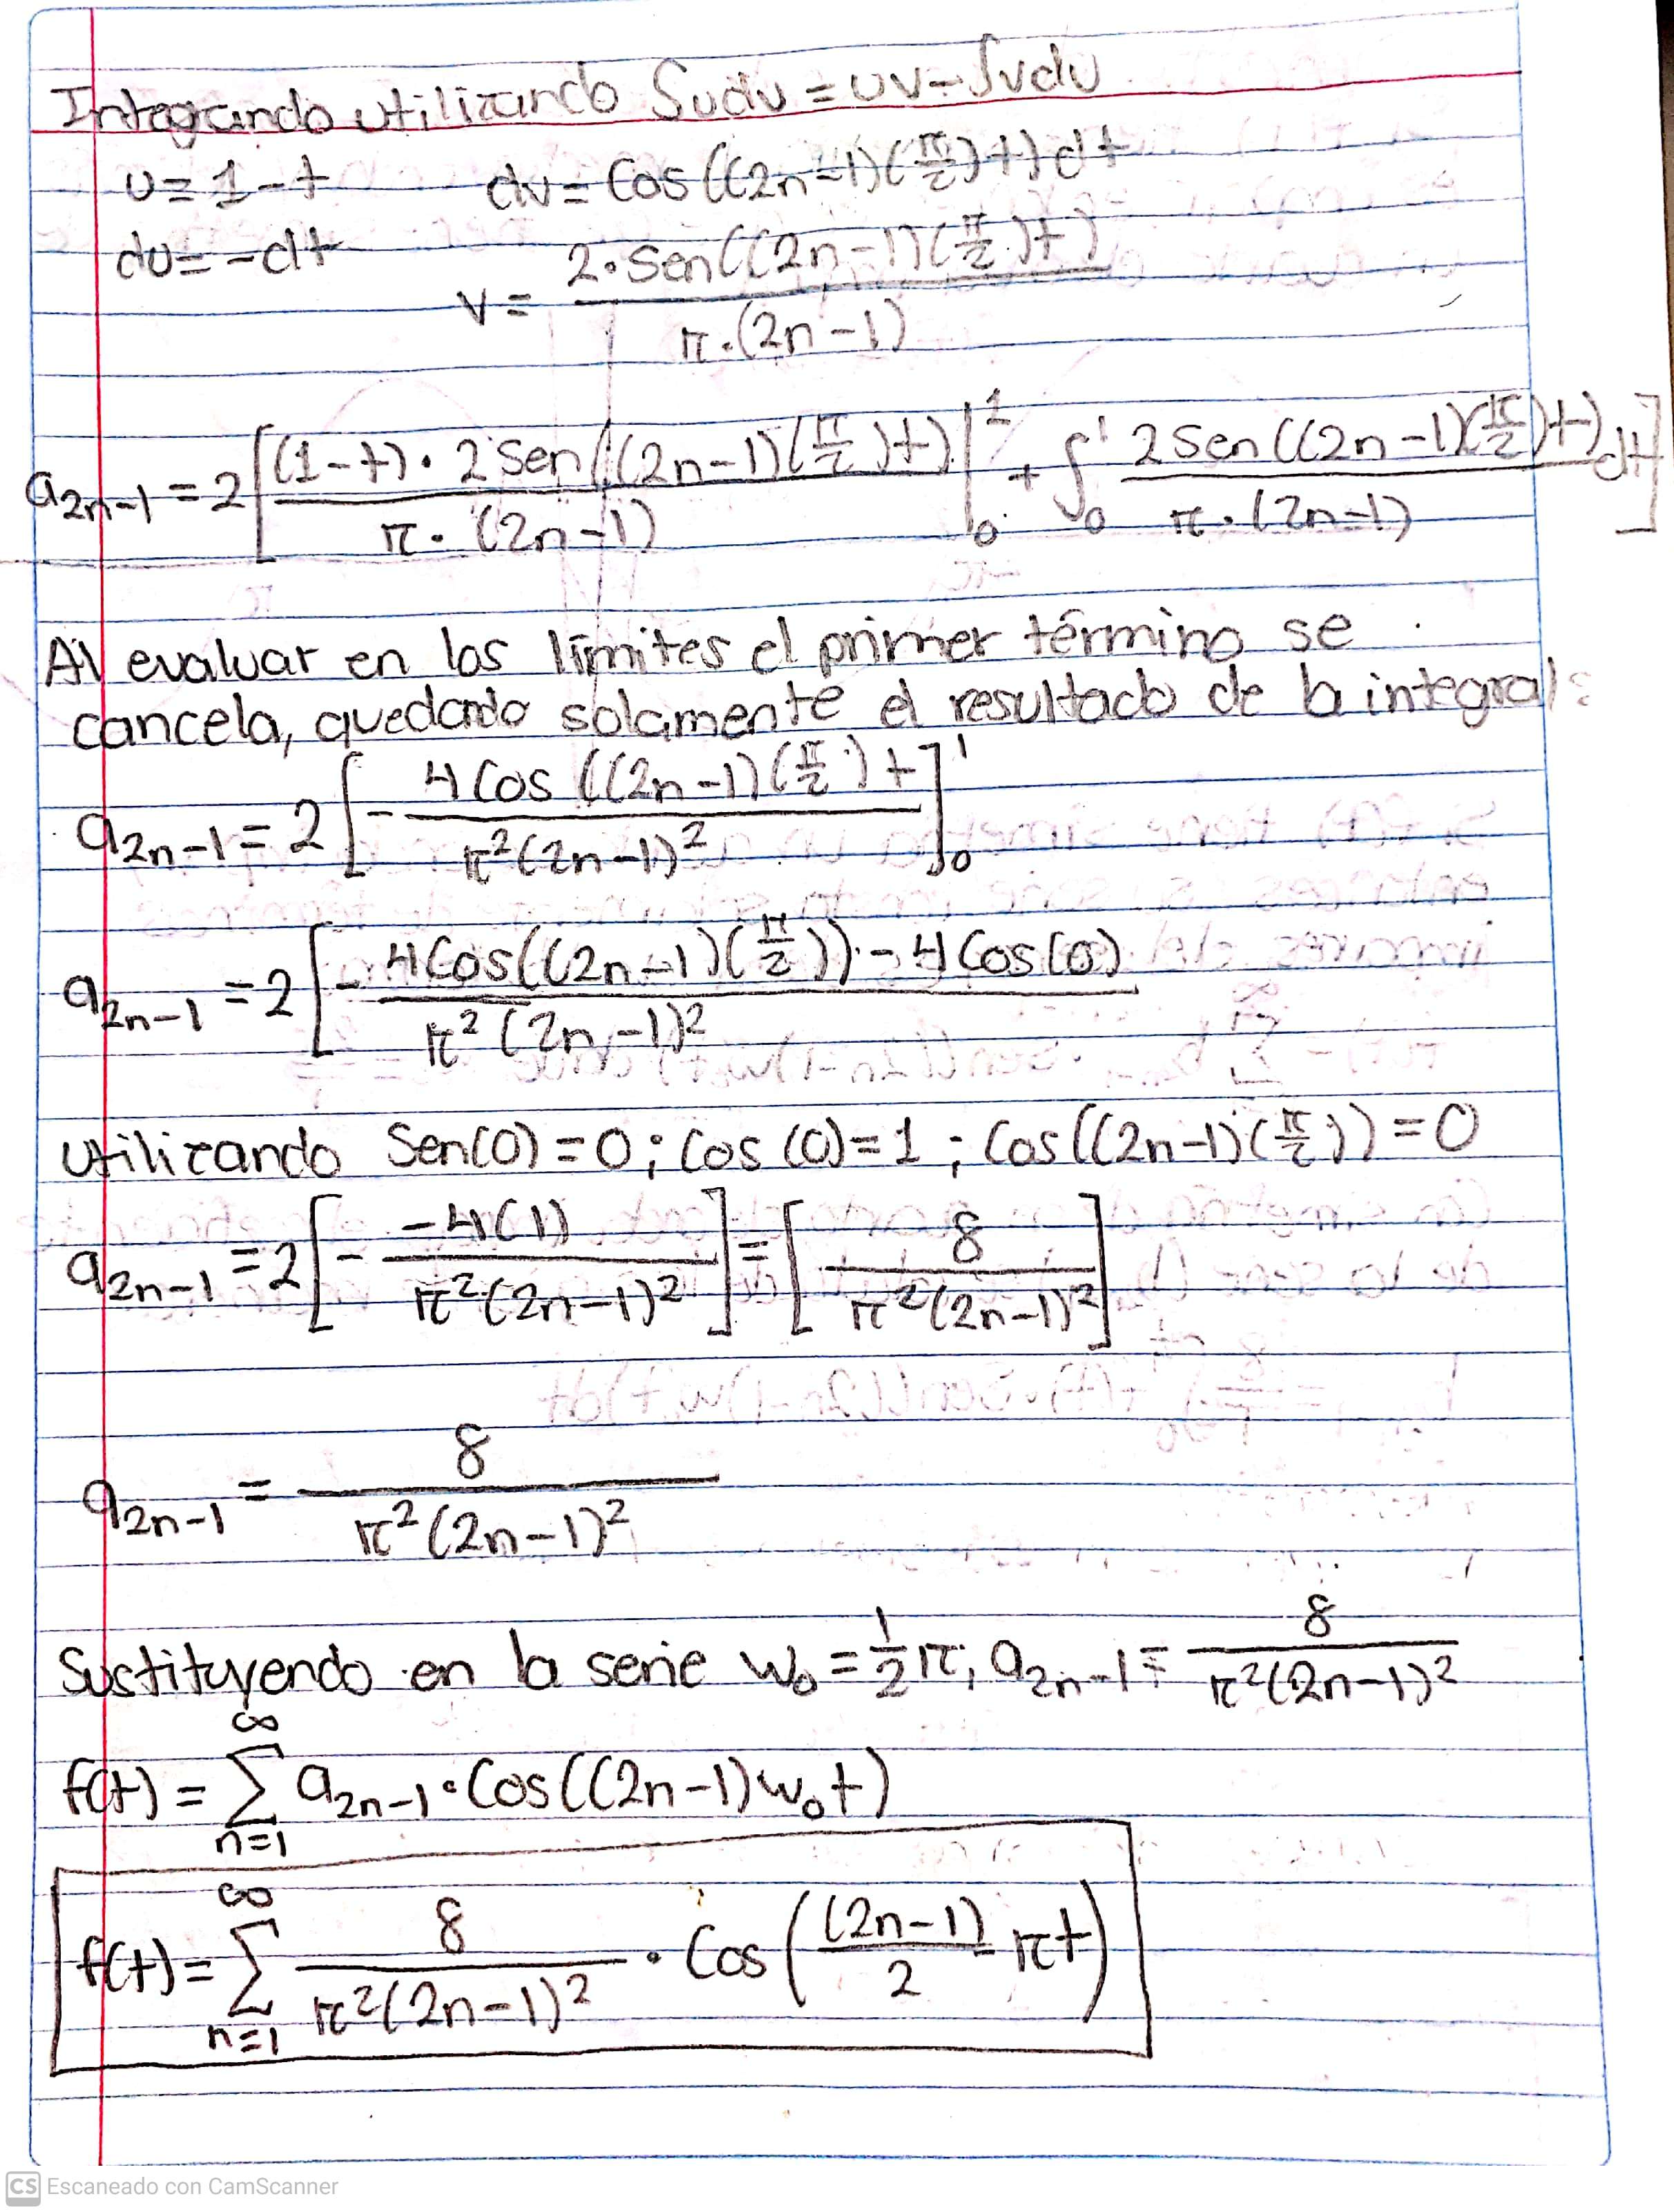 Integrando utilizando ∫udv = uv-∫vdu
u= 1-t    dv= Cos((2n-1)(π/2)t)dt
du=-dt    v= 2·Sen((2n-1)(π/2)t) / π·(2n-1)
a_{2n-1} = 2[(1-t)·2Sen((2n-1)(π/2)t) / π·(2n-1) |_0^1 + ∫_0^1 2Sen((2n-1)(π/2)t) / π·(2n-1) dt]
Al evaluar en los límites el primer término se
cancela, quedando solamente el resultado de la integral:
a_{2n-1} = 2[- 4Cos((2n-1)(π/2)t / π²(2n-1)²]_0^1
a_{2n-1} = 2[- 4Cos((2n-1)(π/2))-4Cos(0) / π²(2n-1)²
utilizando Sen(0)=0; Cos(0)=1; Cos((2n-1)(π/2))=0
a_{2n-1} = 2[- -4(1) / π²(2n-1)²] = [8 / π²(2n-1)²]
a_{2n-1} = 8 / π²(2n-1)²
Sustituyendo en la serie w₀ = ½π; a_{2n-1} = 8 / π²(2n-1)²
f(t) = ∑_{n=1}^∞ a_{2n-1}·Cos((2n-1)w₀t)
f(t) = ∑_{n=1}^∞ 8 / π²(2n-1)² · Cos((2n-1)/2 πt)
CS Escaneado con CamScanner